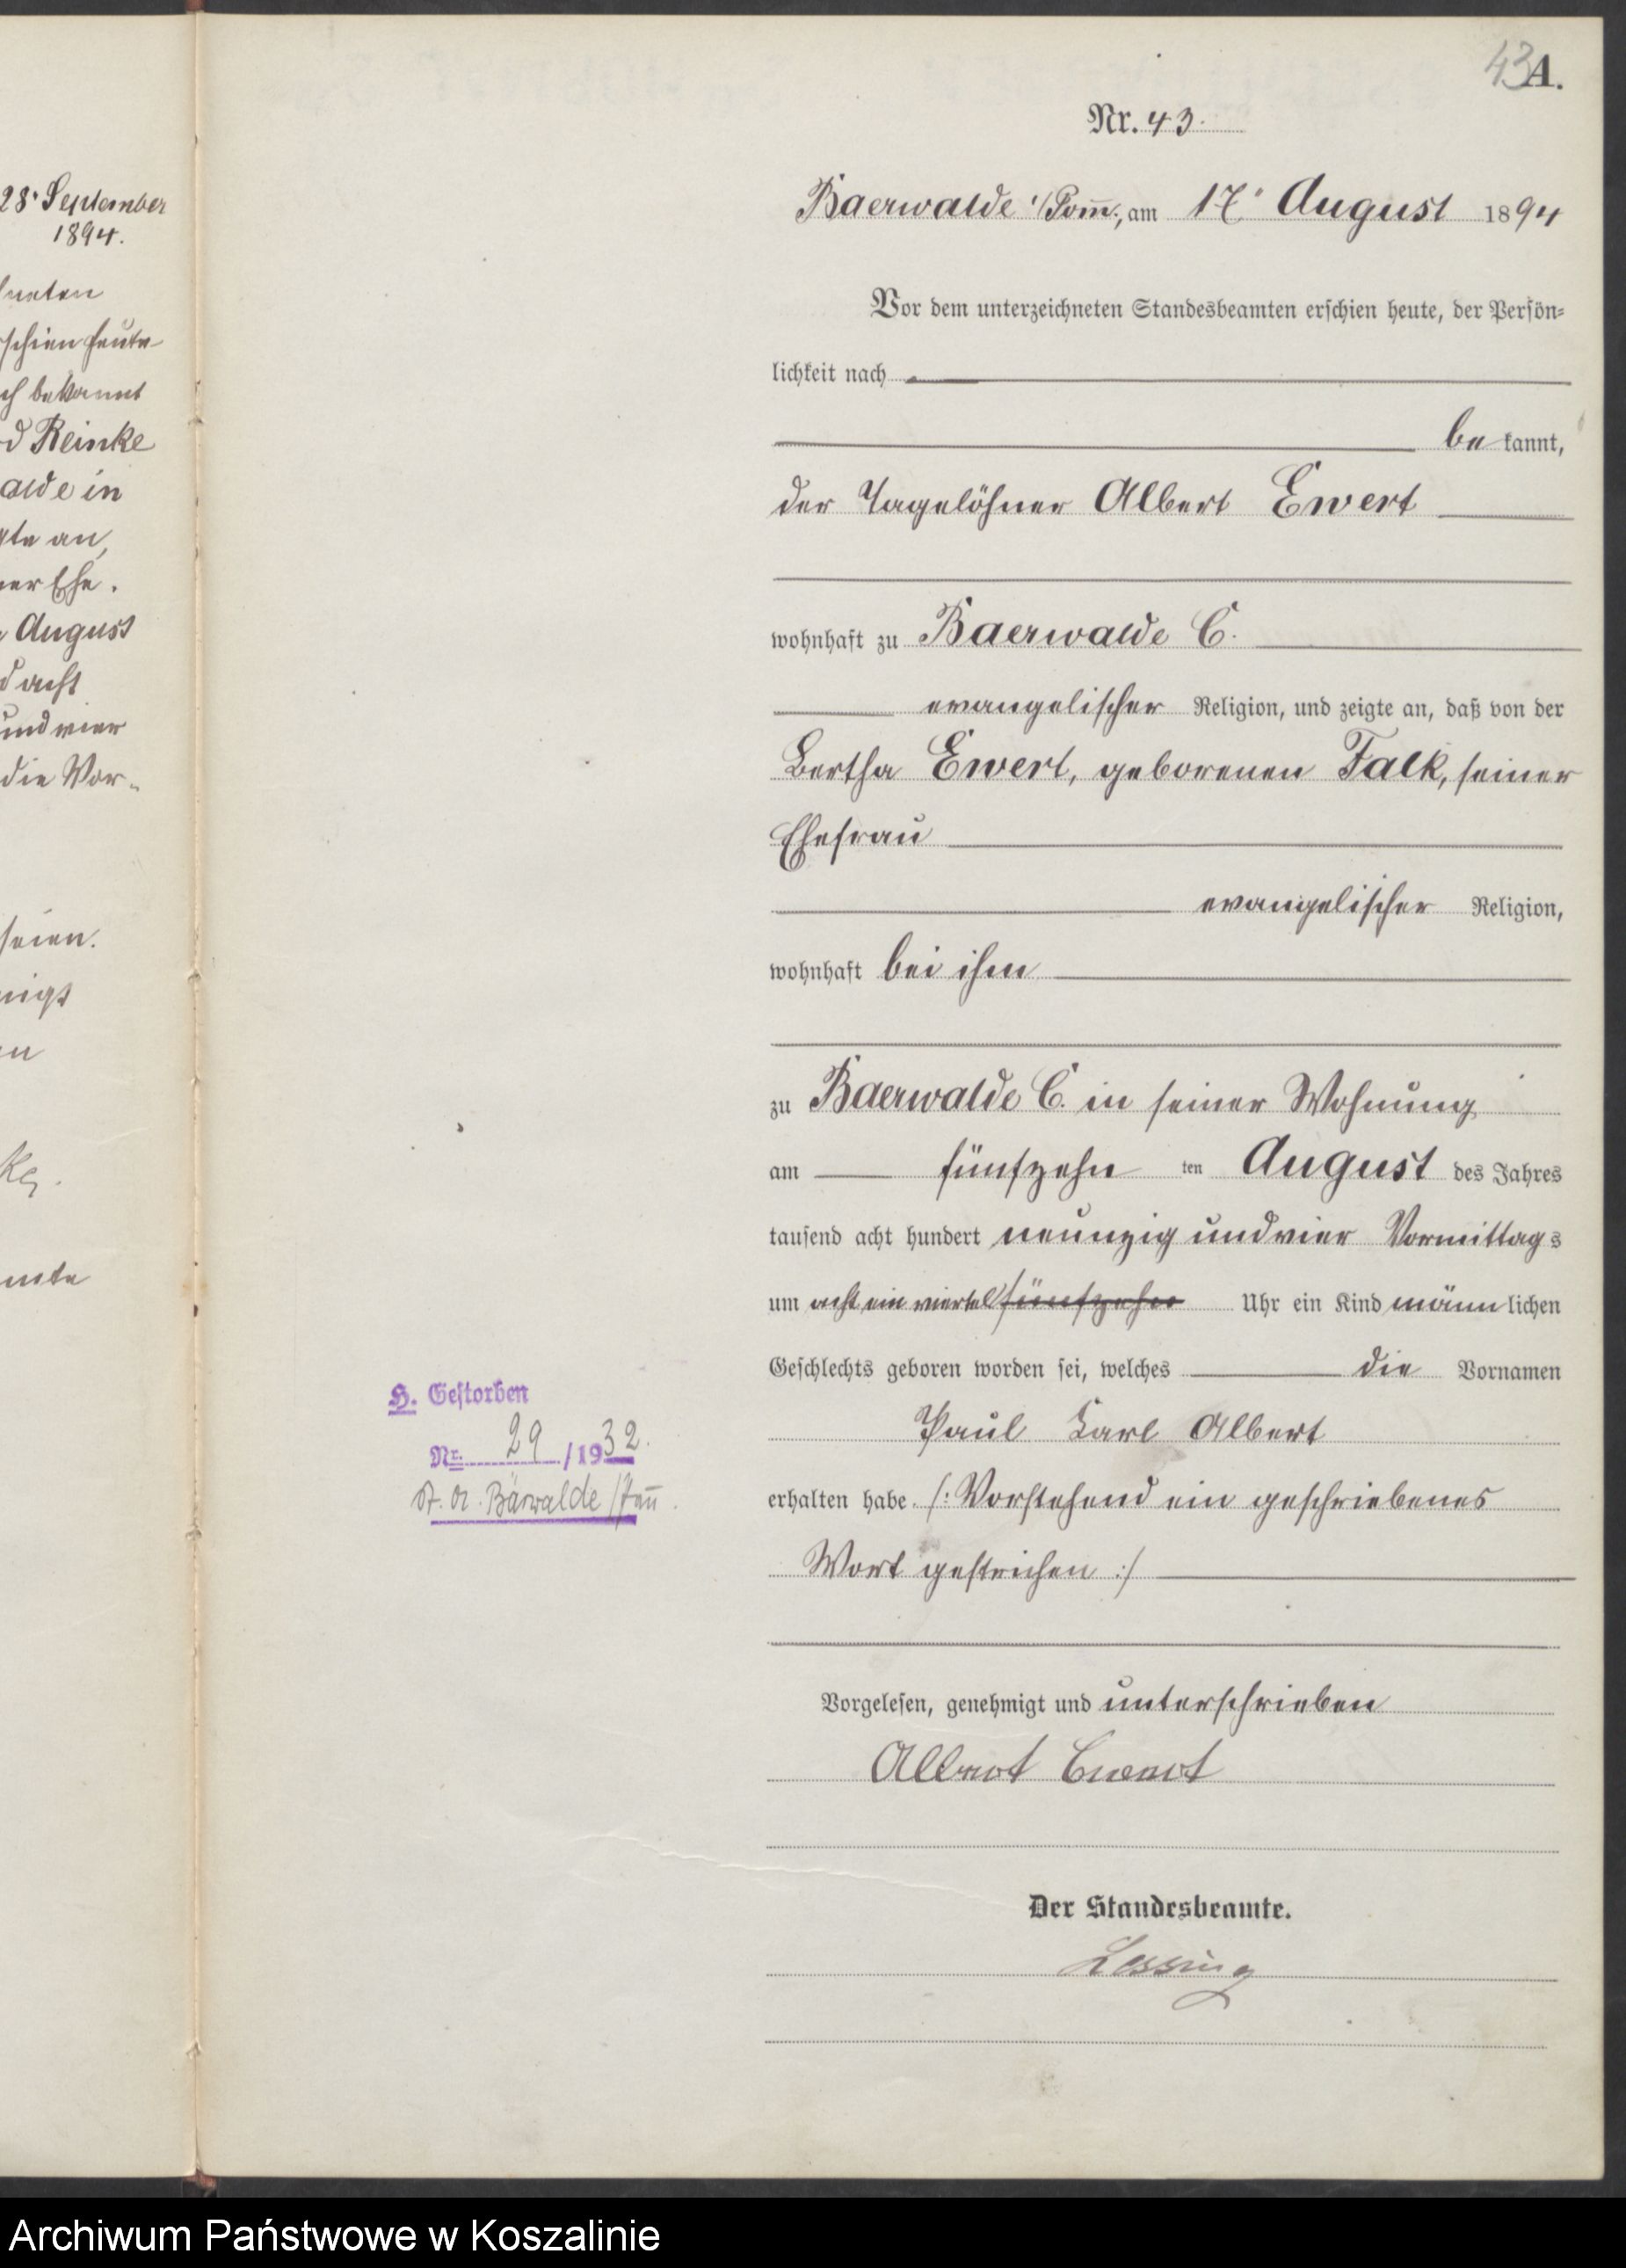 28. September
1894.
neten
schien heute
ch bekannt
d Reinke
alde in
gte an,
ner Ehe.
August
d acht
und vier
die Vor-
seien.
migt
en
ke.
mte
43
A.
Nr. 43.
Baerwalde i/Pomm., am 17. August 1894
Vor dem unterzeichneten Standesbeamten erschien heute, der Persön-
lichkeit nach
be kannt,
der Tagelöhner Albert Ewert
wohnhaft zu Baerwalde C.
evangelischer Religion, und zeigte an, daß von der
Bertha Ewert, geborenen Falk, seiner
Ehefrau
evangelischer Religion,
wohnhaft bei ihm
zu Baerwalde C. in seiner Wohnung
am fünfzehn ten August des Jahres
tausend acht hundert neunzig und vier Vormittags
um acht ein viertel fünfzehn Uhr ein Kind männlichen
Geschlechts geboren worden sei, welches die Vornamen
Paul Karl Albert
erhalten habe. /: Vorstehend ein geschriebenes
Wort gestrichen :/
Vorgelesen, genehmigt und unterschrieben
Albert Ewert
Der Standesbeamte.
Lessing
H. Gestorben
Nr. 29 /1932.
St. A. Bärwalde /Pom.
Archiwum Państwowe w Koszalinie